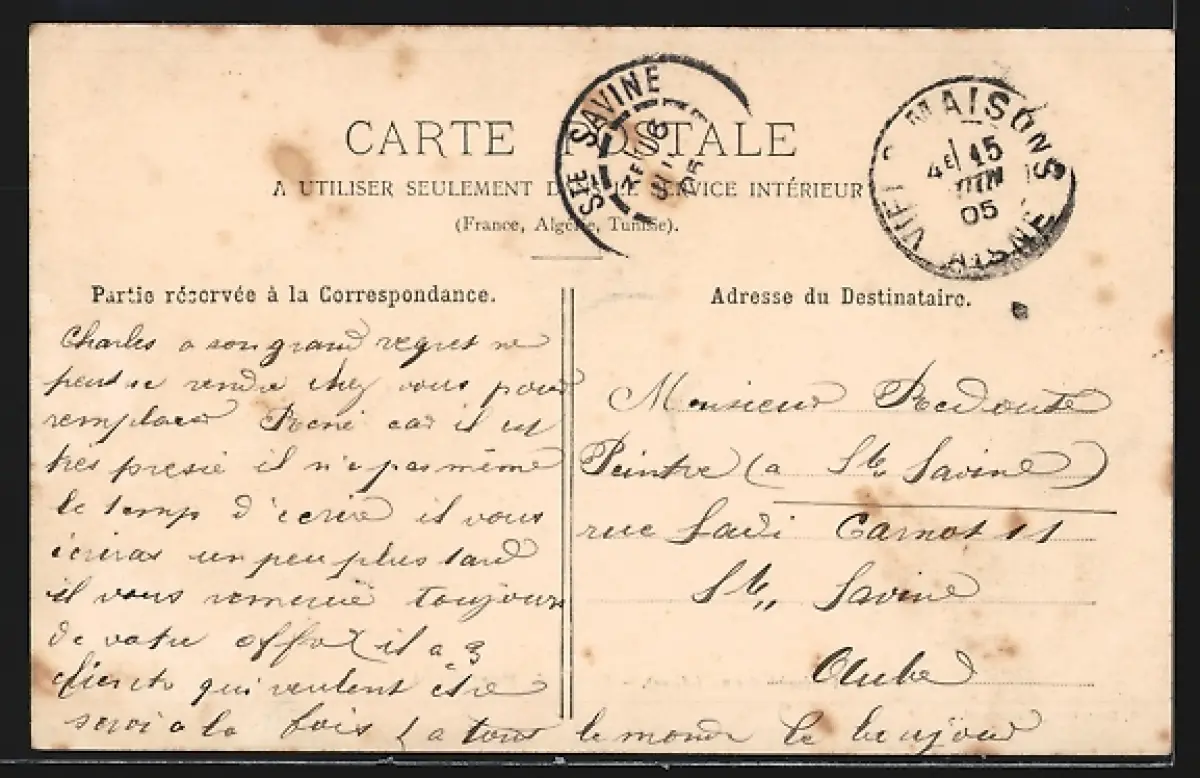 CARTE POSTALE
A UTILISER SEULEMENT DANS LE SERVICE INTÉRIEUR
(France, Algérie, Tunisie).
STE SAVINE
05
MAISONS
4E 15
JUIN
05
AISNE
Partie réservée à la Correspondance.
Charles a son grand regret ne
peut se rendre chez vous pour
remplacer René car il est
très pressé il n'a pas même
le temp d'ecrire il vous
écriras un peu plus tard
il vous remercie toujours
de votre offre il a 3
clients qui veulent être
servi a la fois (a tous le monde le bonjour
Adresse du Destinataire.
Monsieur Redouté
Peintre (a Ste Savine)
rue Sadi Carnot 11
Ste Savine
Aube